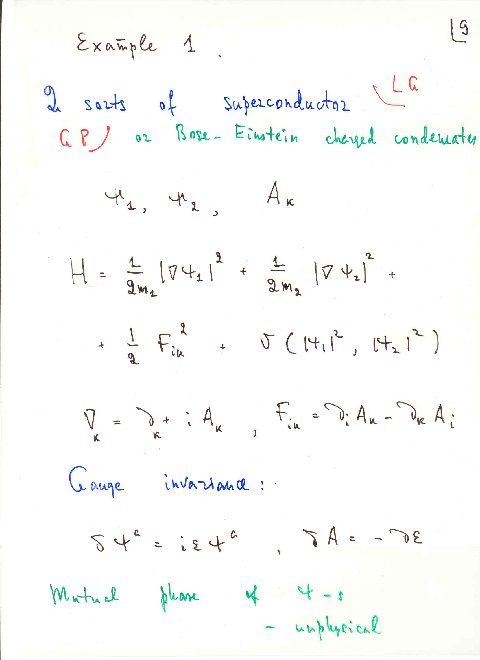 9
Example 1.
2 sorts of superconductor LG
GP or Bose-Einstein charged condensates
ψ₁, ψ₂, Aₖ
H = 1/2m₁ |∇ψ₁|² + 1/2m₂ |∇ψ₂|² +
+ 1/2 Fᵢₖ² + V(|ψ₁|², |ψ₂|²)
∇ₖ = ∂ₖ + i Aₖ, Fᵢₖ = ∂ᵢAₖ - ∂ₖAᵢ
Gauge invariance:
δψᵃ = iεψᵃ, δA = -∂ε
Mutual phase of ψ-s
- unphysical